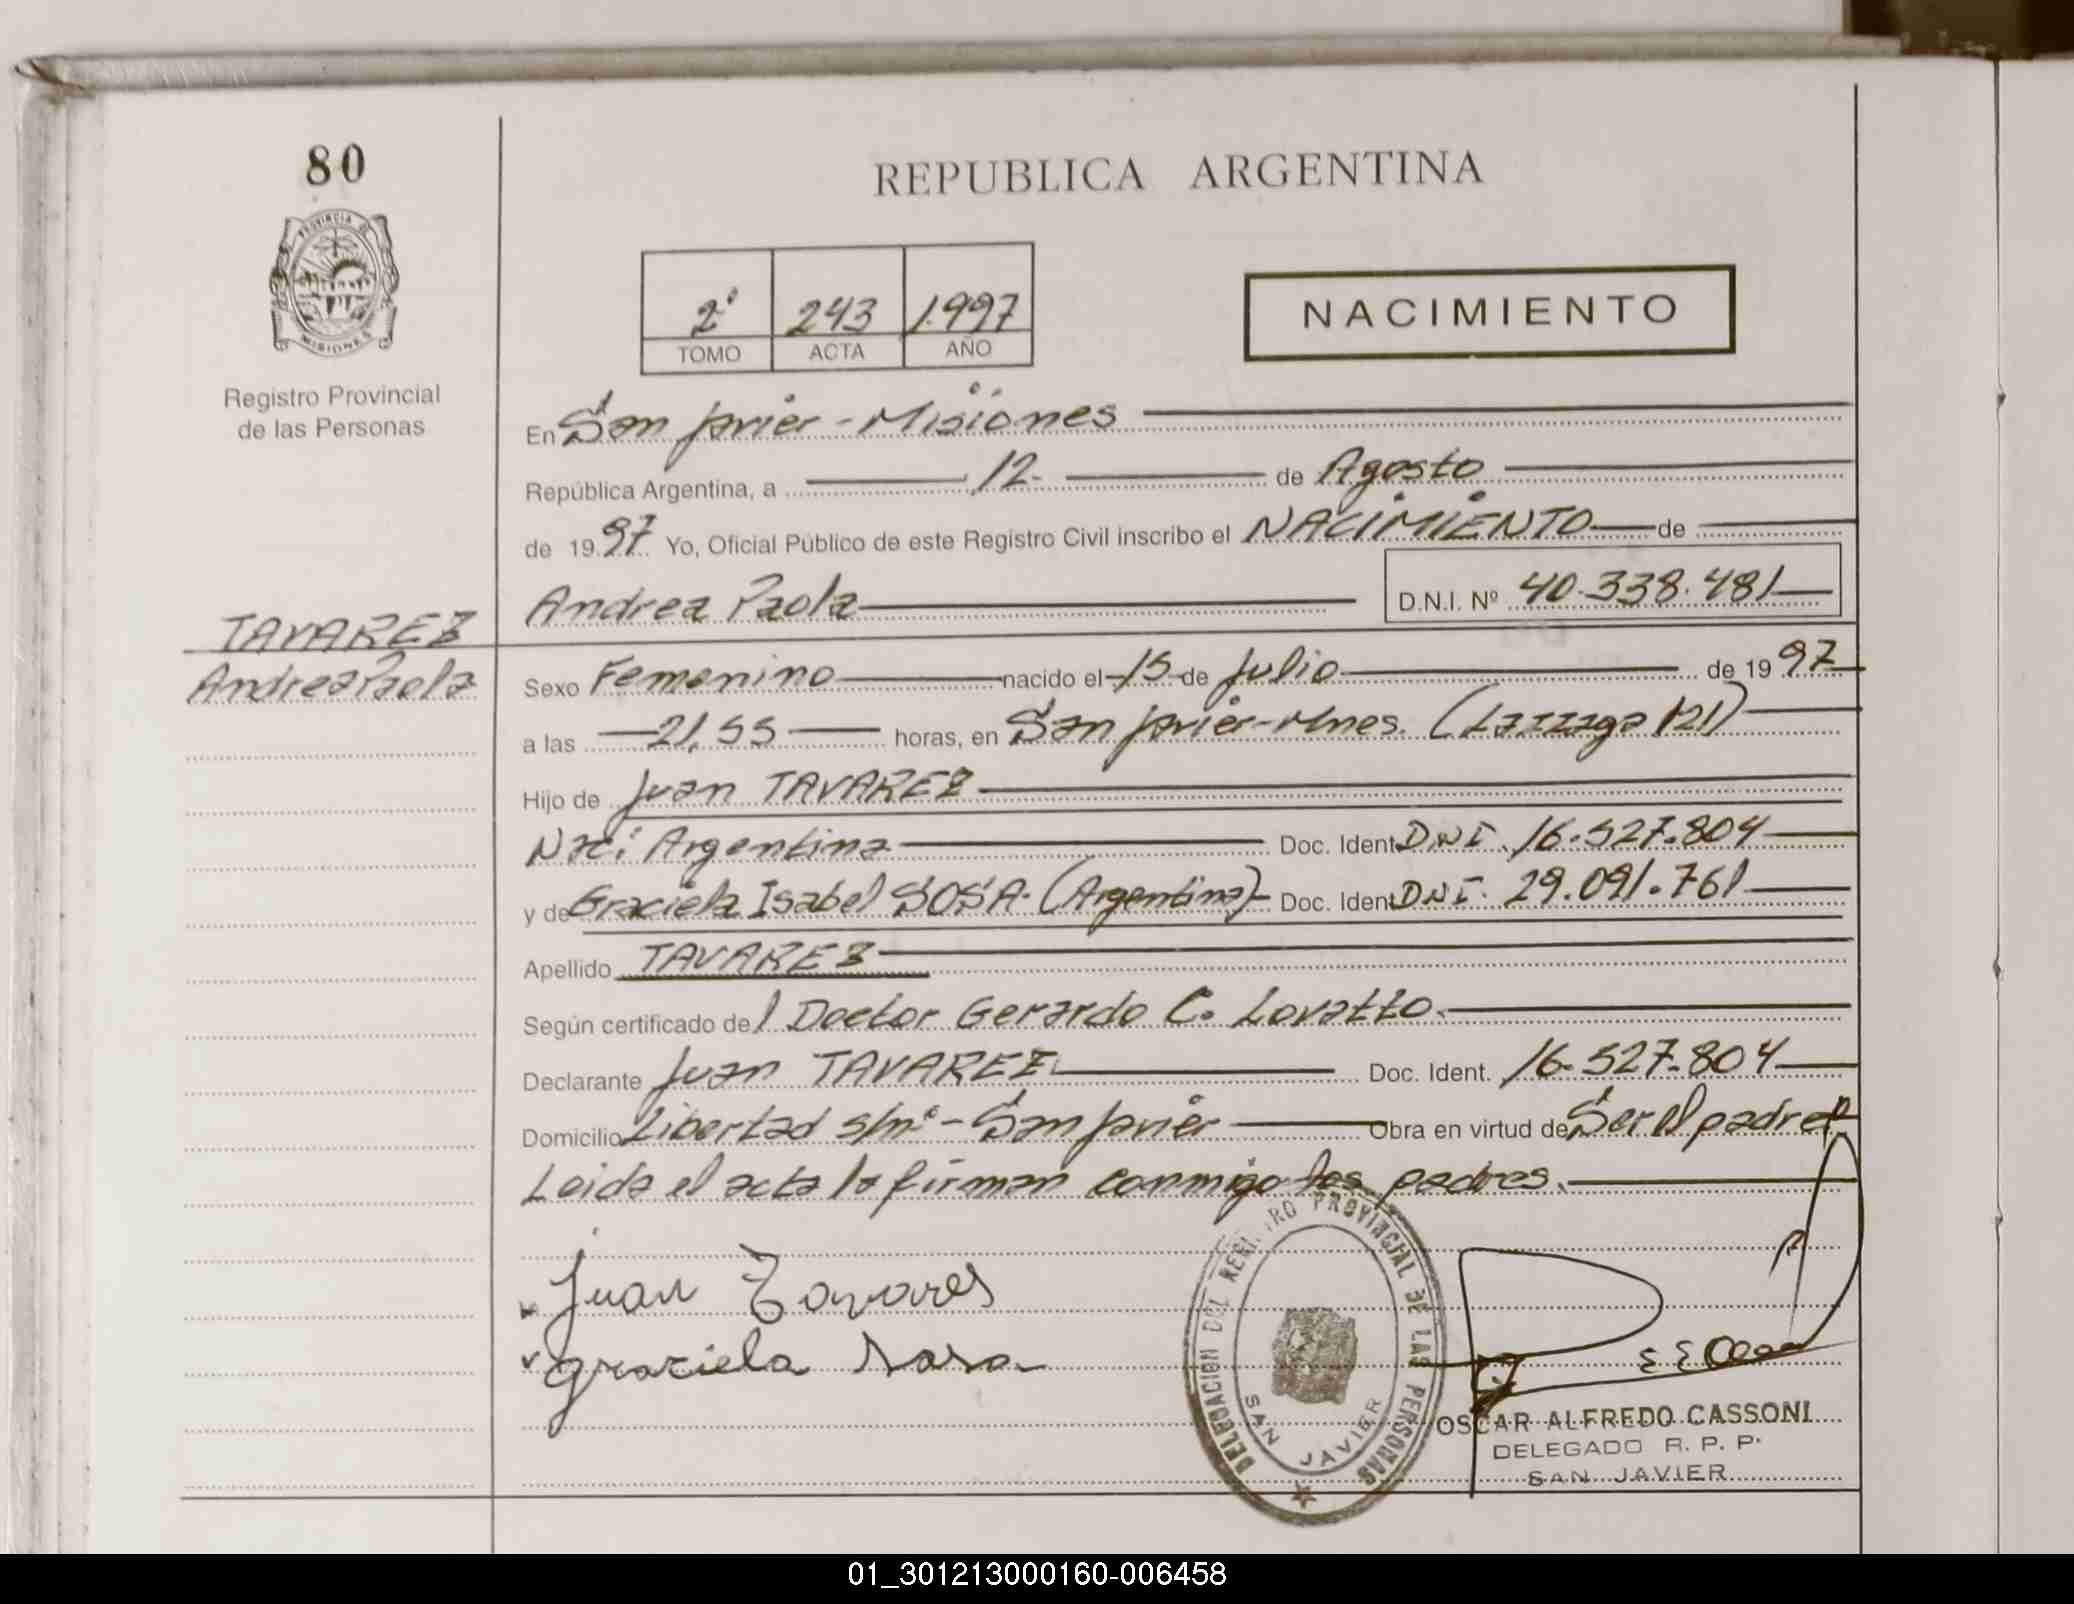 80
REPUBLICA ARGENTINA
PROVINCIA DE
MISIONES
Registro Provincial
de las Personas
2º 243 1.997
TOMO ACTA AÑO
NACIMIENTO
En San Javier - Misiones
República Argentina, a 12 de Agosto
de 19 97 Yo, Oficial Público de este Registro Civil inscribo el NACIMIENTO de
Andrea Paola D.N.I. Nº 40.338.481
TAVAREZ
Andrea Paola
Sexo Femenino nacido el 15 de Julio de 19 97
a las 21,55 horas, en San Javier-Mnes. (Lazzaga 121)
Hijo de Juan TAVAREZ
Naci Argentina Doc. Ident DNI. 16.527.804
y de Graciela Isabel SOSA. (Argentina) Doc. Ident DNI. 29.091.761
Apellido TAVAREZ
Según certificado del Doctor Gerardo C. Lovatto.
Declarante Juan TAVAREZ Doc. Ident. 16.527.804
Domicilio Libertad s/nº - San Javier Obra en virtud de Ser el padre
Leida el acta la firman conmigo los padres.
Juan Tavares
graciela sosa
DELEGACION DEL REGISTRO PROVINCIAL DE LAS PERSONAS
SAN JAVIER
OSCAR ALFREDO CASSONI
DELEGADO R. P. P.
SAN JAVIER
01_301213000160-006458